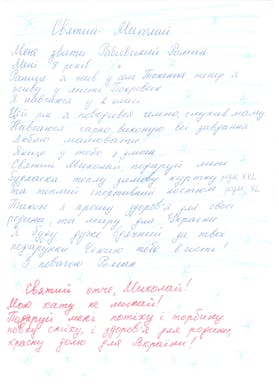 Святий Миколай
Мене звати Рабовський Роман
Мені 7 років
Раніше я жив у селі тепер я
живу у місті Покровськ
Я навчаюся у 2 класі
Цей рік я поводився чемно, слухав маму
Навчаюся гарно, виконую всі завдання
Люблю малювати
Якщо у тебе є змога
Святий Миколай, подаруй мені
будьласка теплу зимову куртку розм. XXL
та теплий спортивний костюм розм. XL
Також я прошу здоров'я для своєї
родини, та миру для України
Я буду дуже вдячний за твої
подарунки Чекаю тебе в гості!
З повагою Роман
Святий отче, Миколай!
Мою хату не минай!
Подаруй мені потіху і торбину
повну сміху, і здоров'я для родини,
красну долю для Вкраїни!